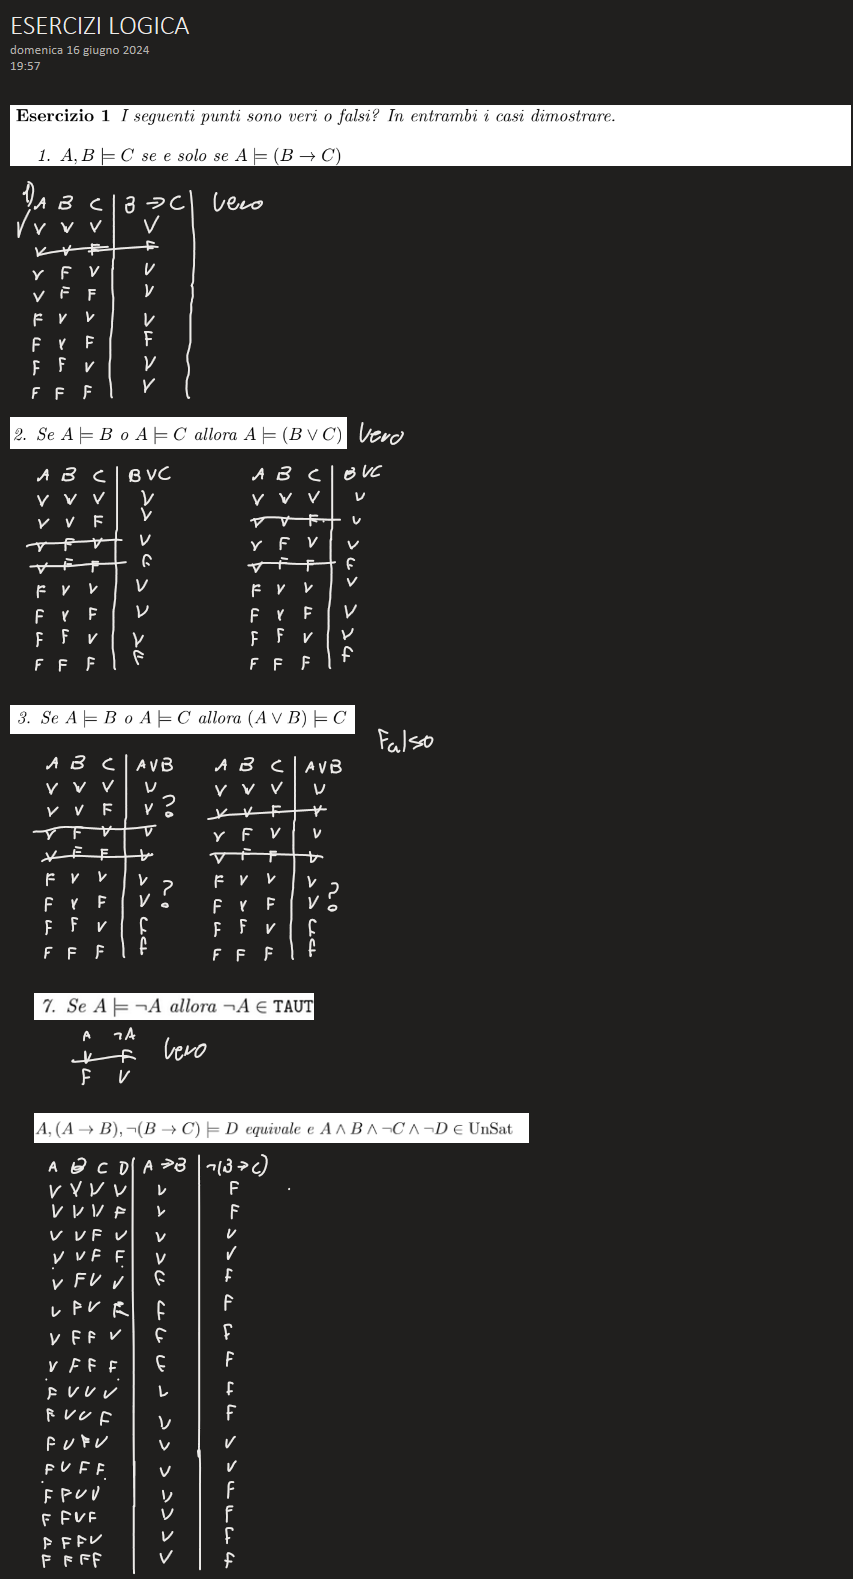 ESERCIZI LOGICA
domenica 16 giugno 2024
19:57
Esercizio 1 I seguenti punti sono veri o falsi? In entrambi i casi dimostrare.
1. A, B ⊨ C se e solo se A ⊨ (B → C)
1) A B C | B → C | Vero
V V V | V
V V F | F
V F V | V
V F F | V
F V V | V
F V F | F
F F V | V
F F F | V
2. Se A ⊨ B o A ⊨ C allora A ⊨ (B ∨ C) Vero
A B C | B V C A B C | B V C
V V V | V V V V | V
V V F | V V V F | V
V F V | V V F V | V
V F F | F V F F | F
F V V | V F V V | V
F V F | V F V F | V
F F V | V F F V | V
F F F | F F F F | F
3. Se A ⊨ B o A ⊨ C allora (A ∨ B) ⊨ C
Falso
A B C | A V B A B C | A V B
V V V | V V V V | V
V V F | V ? V V F | V
V F V | V V F V | V
V F F | V V F F | V
F V V | V F V V | V
F V F | V ? F V F | V ?
F F V | F F F V | F
F F F | F F F F | F
7. Se A ⊨ ¬A allora ¬A ∈ TAUT
A ¬A
V F Vero
F V
A, (A → B), ¬(B → C) ⊨ D equivale e A ∧ B ∧ ¬C ∧ ¬D ∈ UnSat
A B C D | A → B | ¬(B → C)
V V V V | V | F
V V V F | V | F
V V F V | V | V
V V F F | V | V
V F V V | F | F
V F V F | F | F
V F F V | F | F
V F F F | F | F
F V V V | V | F
F V V F | V | F
F V F V | V | V
F V F F | V | V
F F V V | V | F
F F V F | V | F
F F F V | V | F
F F F F | V | F